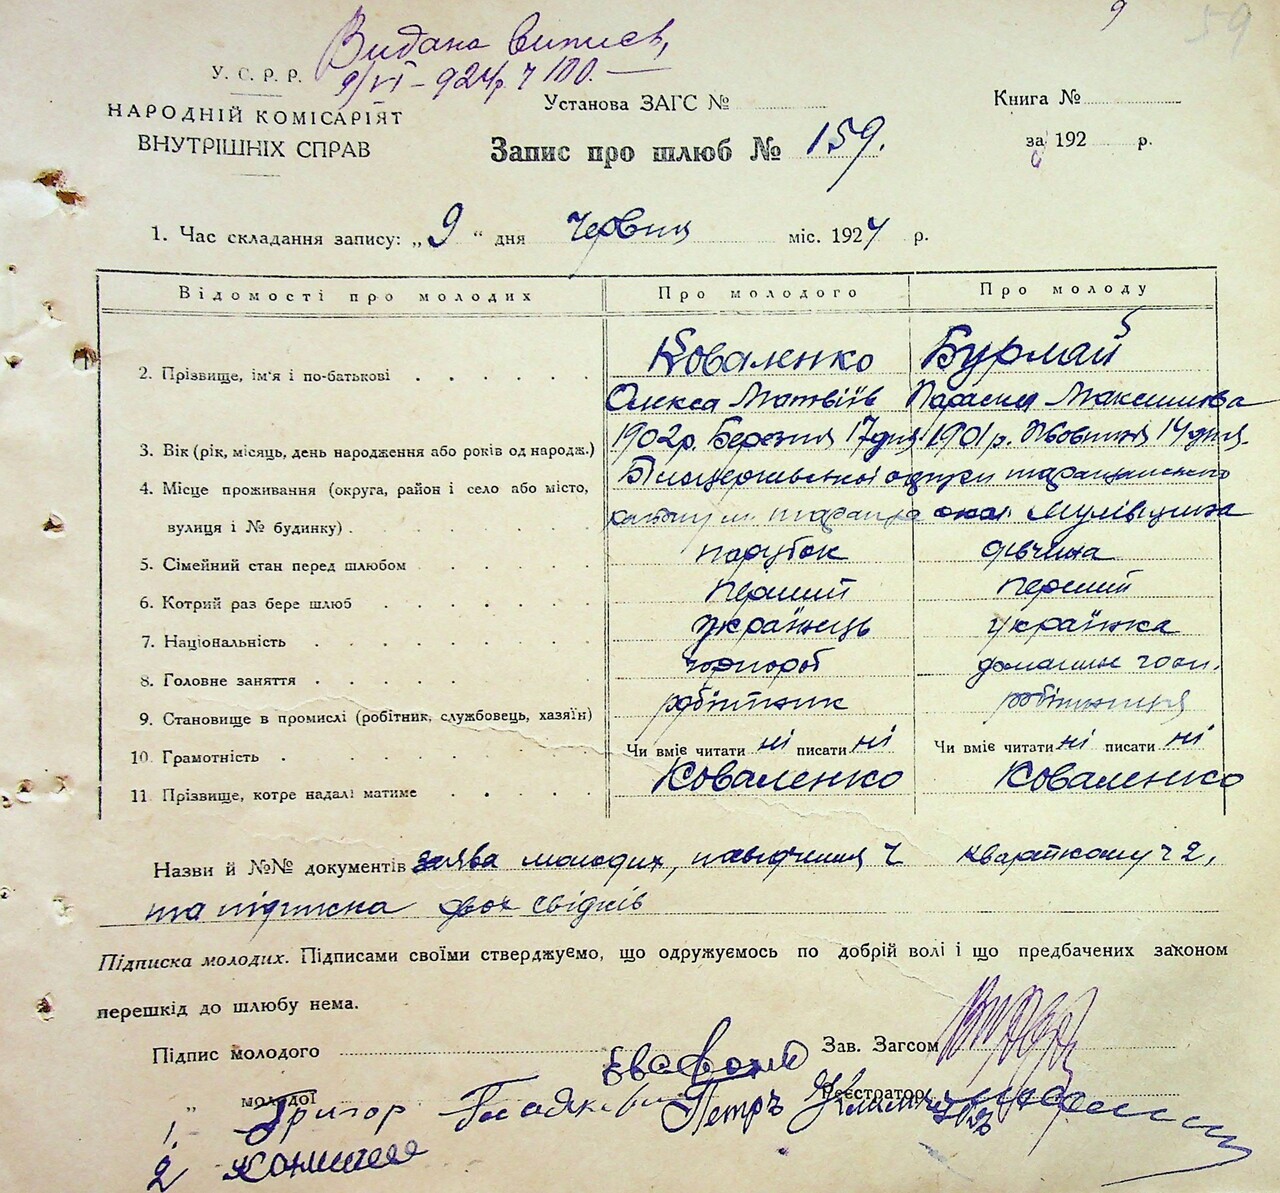 9 59
Видана випись,
9/VI – 924р. ч 100.
У. С. Р. Р.
НАРОДНІЙ КОМІСАРІЯТ
ВНУТРІШНІХ СПРАВ
Установа ЗАГС №
Запис про шлюб № 159.
Книга №
за 192 р.
1. Час складання запису: „9“ дня Червня міс. 1924 р.
Відомості про молодих Про молодого Про молоду
2. Прізвище, ім'я і по-батькові Коваленко Бурмай
Олекса Матвіїв Параска Максимова
3. Вік (рік, місяць, день народження або років од народж.) 1902р. Березня 17 дня 1901 р. Жовтня 14 дня.
4. Місце проживання (округа, район і село або місто, Білоцерківської округи таращанського
вулиця і № будинку) м. Тараща Мулівщина
5. Сімейний стан перед шлюбом парубок дівчина
6. Котрий раз бере шлюб перший перший
7. Національність українець українка
8. Головне заняття чорнороб домашнє госп.
9. Становище в промислі (робітник, службовець, хазяїн) робітник робітниця
10. Грамотність Чи вміє читати ні писати ні Чи вміє читати ні писати ні
11. Прізвище, котре надалі матиме Коваленко Коваленко
Назви й №№ документів заява молодих, посвідчення ч кварткому ч 2,
та підписка двох свідків
Підписка молодих. Підписами своїми стверджуємо, що одружуємось по добрій волі і що предбачених законом
перешкід до шлюбу нема.
Підпис молодого Зав. Загсом
„ молодої Реєстратор
1. Григор Петръ
2